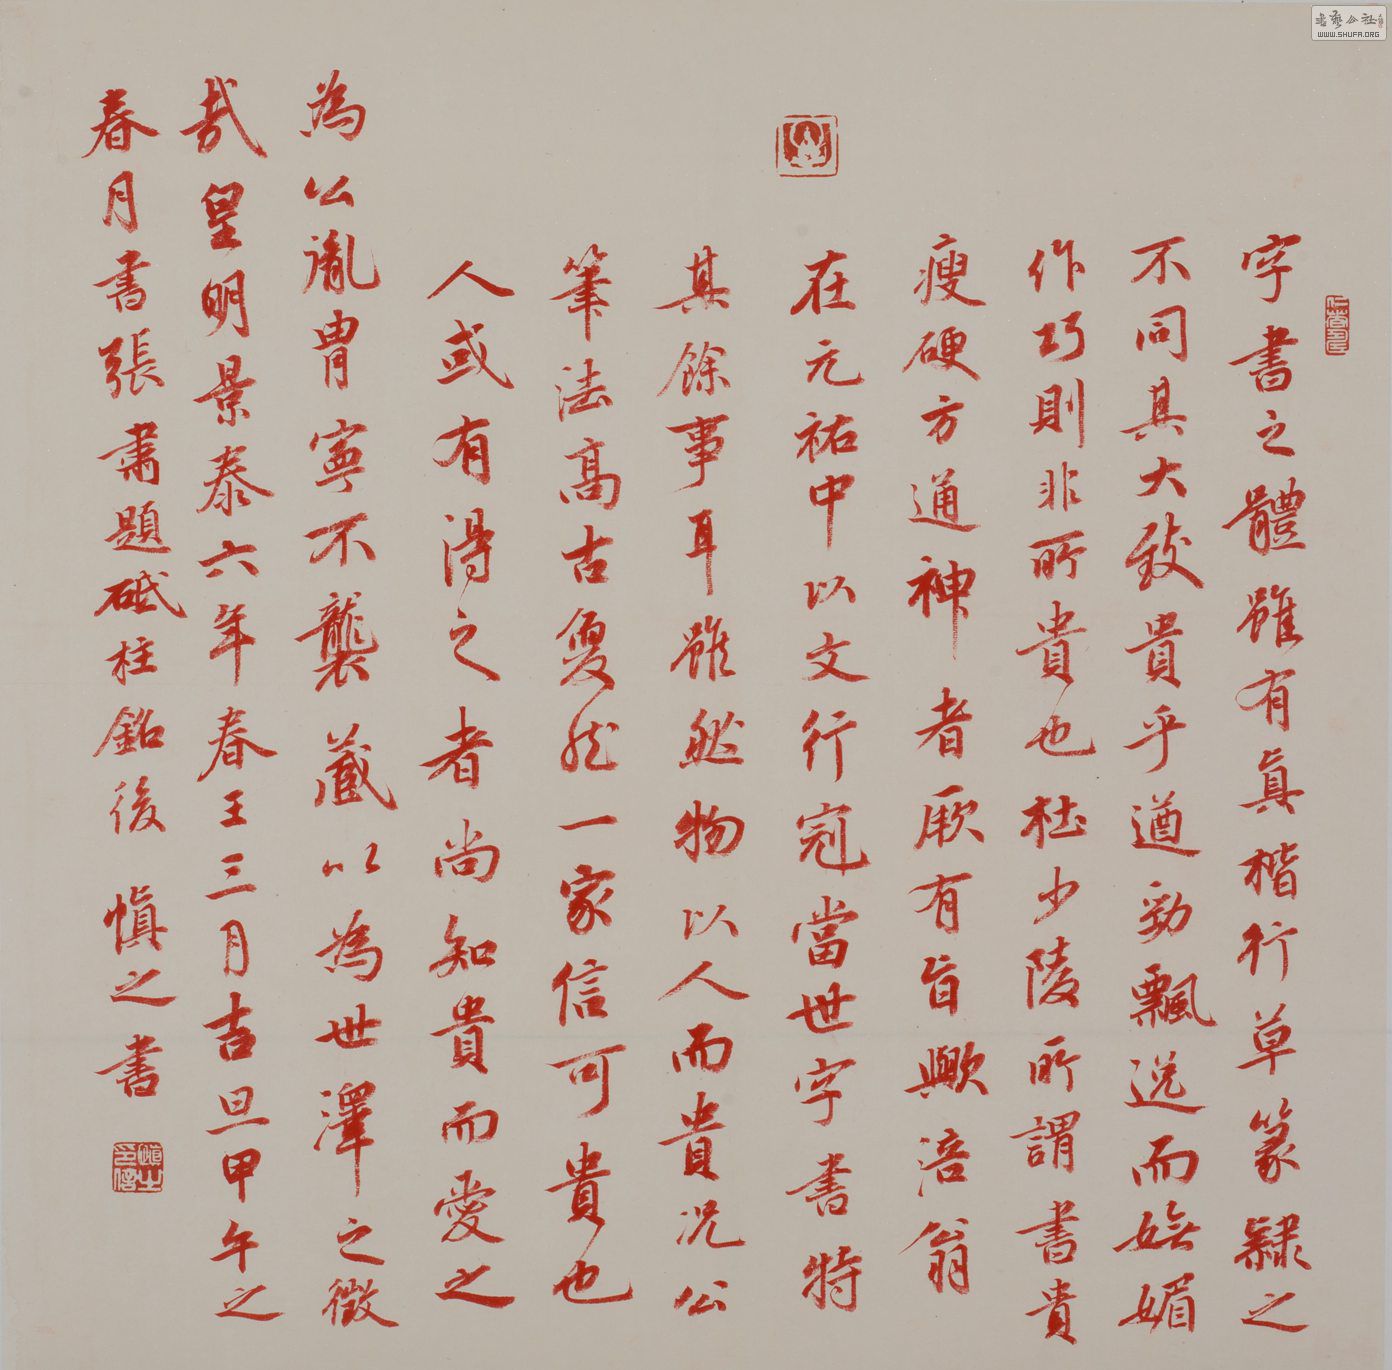 字書之體雖有真楷行草篆隸之
不同其大致貴乎遒勁飄逸而妩媚
作巧則非所貴也杜少陵所謂書貴
瘦硬方通神者厥有旨歟涪翁
在元祐中以文行冠當世字書特
其餘事耳雖然物以人而貴況公
筆法高古夐然一家信可貴也
人或有得之者尚知貴而愛之
為公胤胄寧不襲藏以為世澤之徵
哉皇明景泰六年春王三月吉旦甲午之
春月書張肅題砥柱銘後 慎之書
書藝公社
WWW.SHUFA.ORG